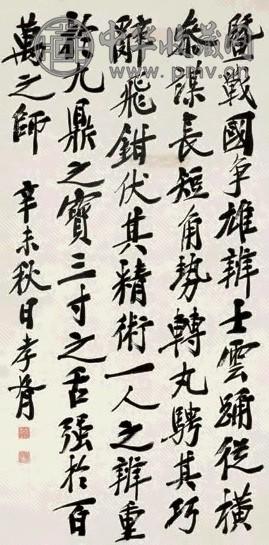 中华收藏网
www.pmv.cn
暨戰國争雄辨士雲踊從橫
參謀長短角勢轉丸騁其巧
辭飛鉗伏其精術一人之辨重
於九鼎之寶三寸之舌强於百
萬之師 辛未秋日孝胥